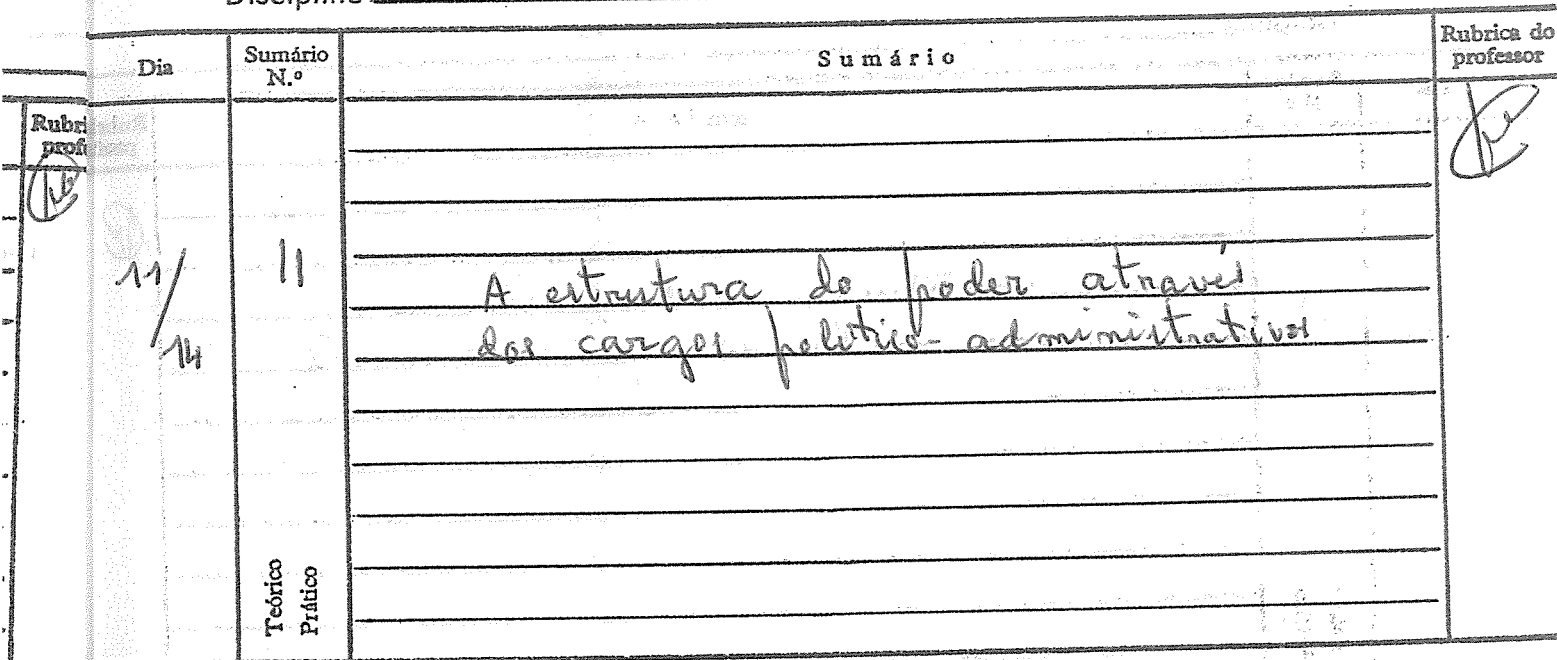 Dia
Sumário N.º
Sumário
Rubrica do professor
11/14
11
A estrutura do poder através
dos cargos politico-administrativos
Teórico
Prático